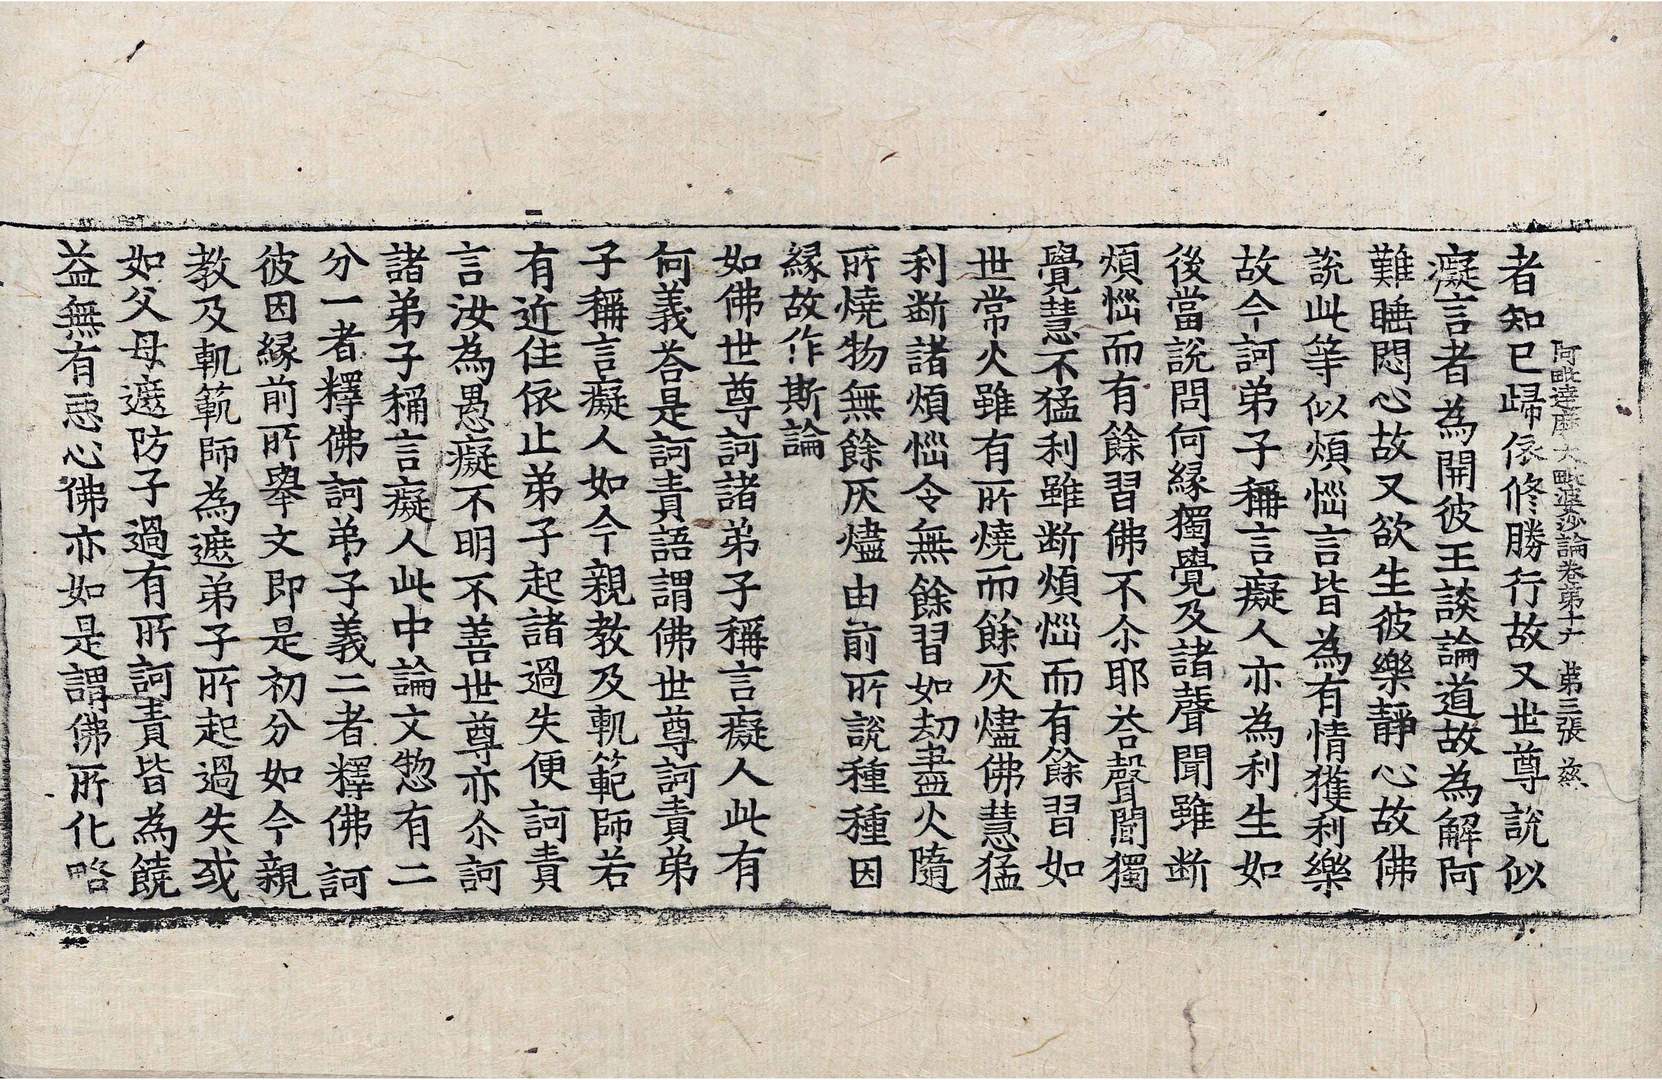 阿毗達磨大毗婆沙論卷第十六 第三張 兹
者知已歸依修勝行故又世尊說似
癡言者為開彼王談論道故為解阿
難睡悶心故又欲生彼樂靜心故佛
說此等似煩惱言皆為有情獲利樂
故今訶弟子稱言癡人亦為利生如
後當說問何緣獨覺及諸聲聞雖斷
煩惱而有餘習佛不尒耶荅聲聞獨
覺慧不猛利雖斷煩惱而有餘習如
世常火雖有所燒而餘灰燼佛慧猛
利斷諸煩惱令無餘習如劫盡火隨
所燒物無餘灰燼由前所說種種因
緣故作斯論
如佛世尊訶諸弟子稱言癡人此有
何義荅是訶責語謂佛世尊訶責弟
子稱言癡人如今親教及軌範師若
有近住依止弟子起諸過失便訶責
言汝為愚癡不明不善世尊亦尒訶
諸弟子稱言癡人此中論文惣有二
分一者釋佛訶弟子義二者釋佛訶
彼因緣前所舉文即是初分如今親
教及軌範師為遮弟子所起過失或
如父母遮防子過有所訶責皆為饒
益無有惡心佛亦如是謂佛所化略